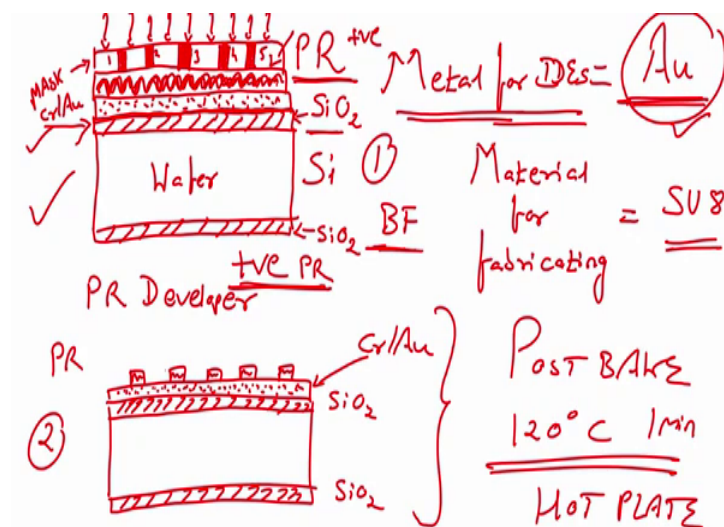 PR +ve
MASK
Cr/Au
SiO2
Wafer
Si
1
SiO2
BF
+ve PR
PR Developer
Metal for IDEs = Au
Material
for
fabricating
= SU8
PR
2
Cr/Au
SiO2
SiO2
POST BAKE
120°C 1 Min
HOT PLATE